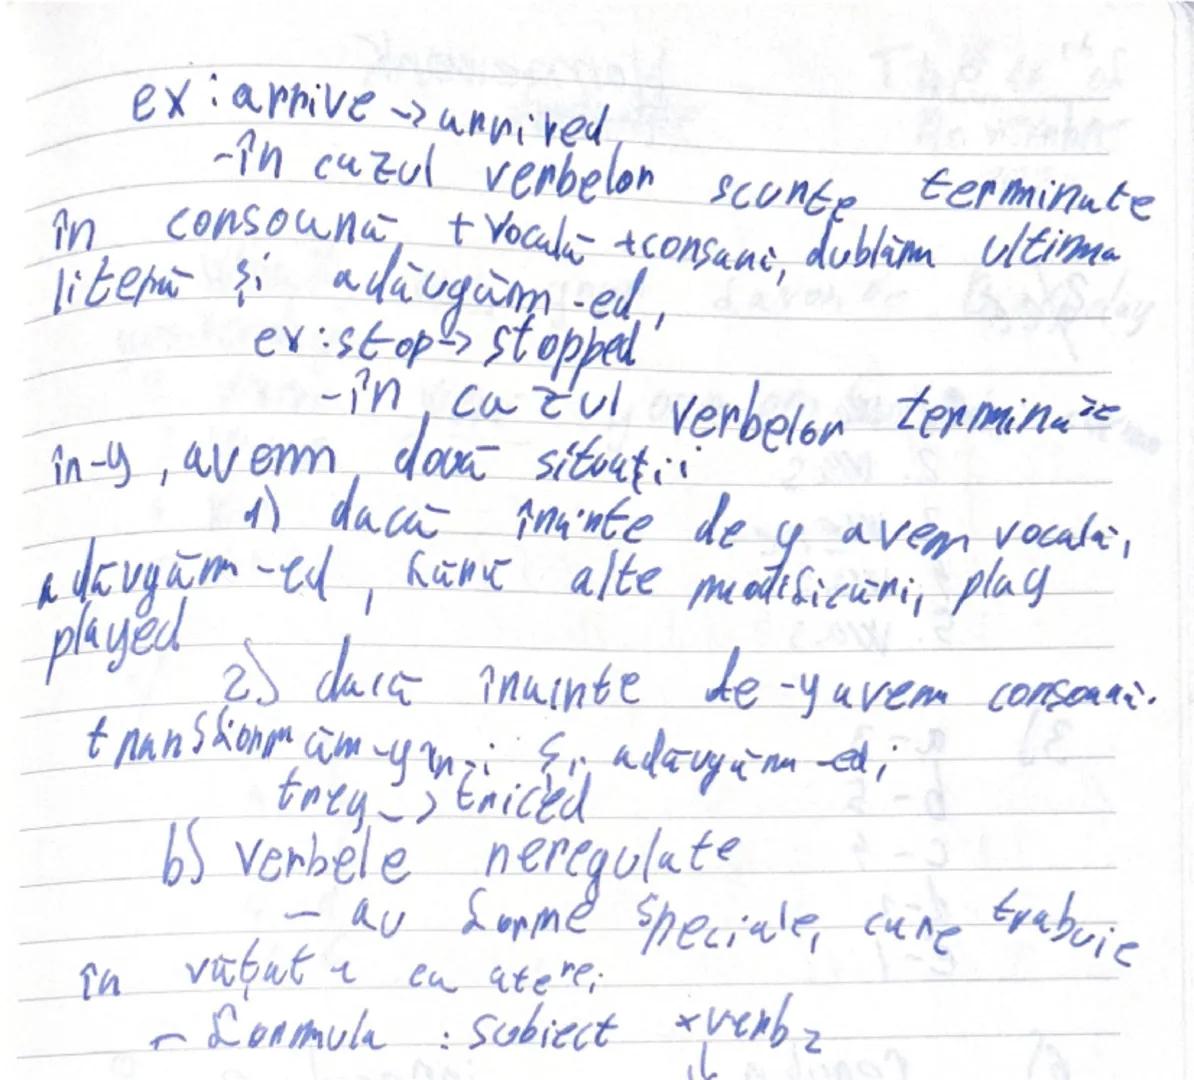 ex: arrive -> arrived
-în cazul verbelor scurte terminate
în consoană, + vocală + consană, dublăm ultima
literă și adăugăm -ed,
ex: stop -> stopped
-în cazul verbelor terminate
în -y, avem două situații
1) dacă înainte de y avem vocală,
adăugăm -ed, fără alte modificări, play
played
2) dacă înainte de -y avem consoană.
transformăm -y în -i și adăugăm -ed;
trey -> triced
b) verbele neregulate
- au forme speciale, care trabuie
în vățate ca atere;
- formula : subiect + verb 2